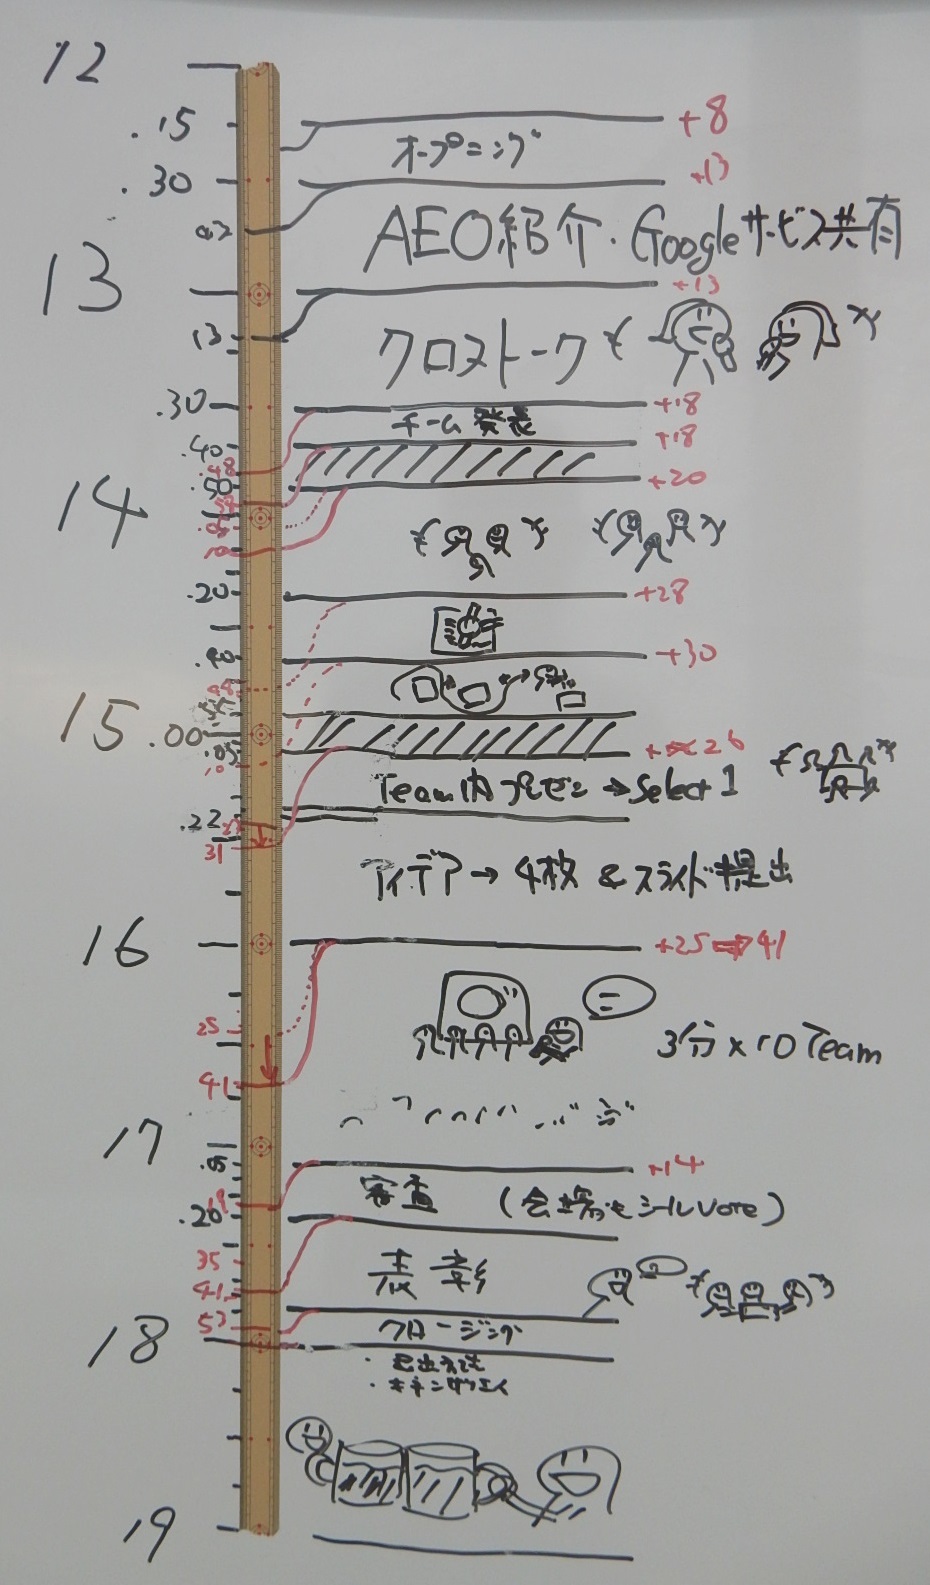 12
.15
+8
オープニング
.30
+13
AEO紹介・Googleサービス共有
13
+13
13
クロストーク
.30
+18
チーム発表
.40
+18
48
.50
+20
14
.20
+28
.40
+30
15.00
.05
26
10
Team内プレゼン→Select 1
.22
31
アイデア→4枚 & スライド提出
16
+25⇒41
25
3分×10Team
41
17
.05
+14
審査 (会場もシールVote)
19
.20
表彰
35
41
53
クロージング
18
19